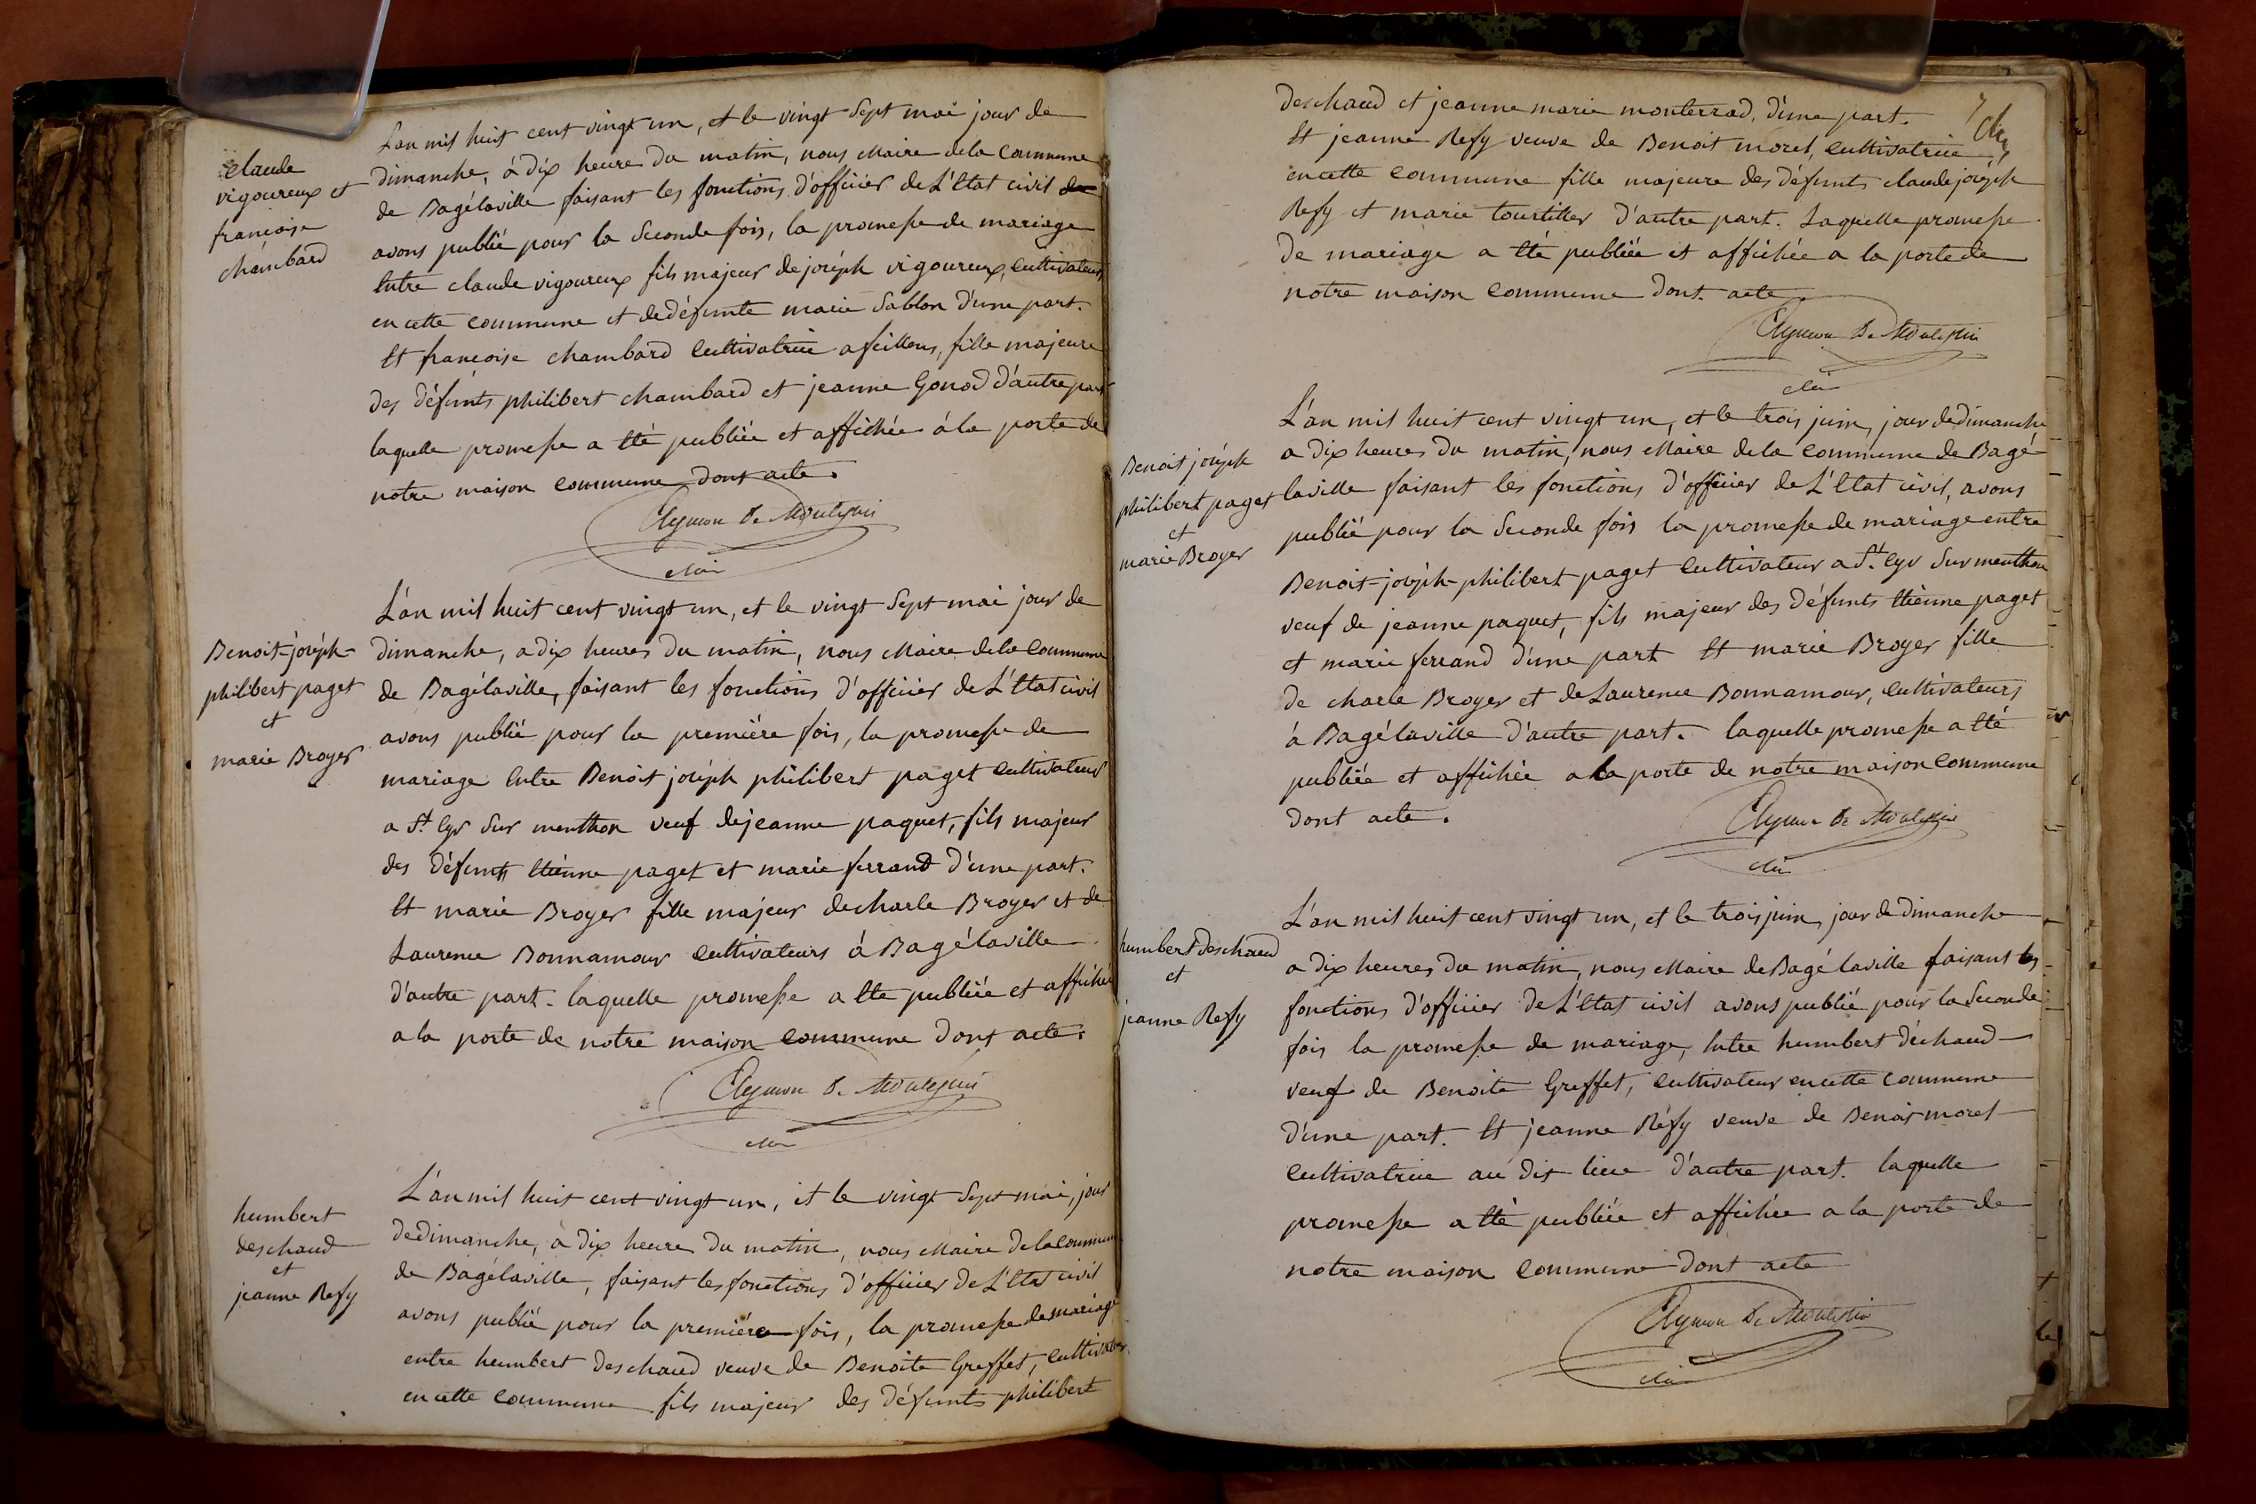 claude
vigoureux et
francoise
chambard
L'an mil huit cent vingt un, et le vingt sept mai jour de
dimanche, à dix heure du matin, nous Maire dela commune
de Bagélaville faisant les fonctions d'officier de L'Etat civil
avons publié pour la seconde fois, la promesse de mariage
Entre claude vigoureux fils majeur de joséph vigoureux, cultivateur
en cette commune et de défunte marie Sablon d'une part.
Et francoise chambard Cultivatrice a feillens, fille majeure
des défunts philibert chambard et jeanne Gonod d'autre part
laquelle promesse a Eté publiée et affichée à la porte de
notre maison commune dont acte.
Aymon De Montepin
Benoit-joséph-
philibert paget
et
marie Broyer
L'an mil huit cent vingt un, et le vingt sept mai jour de
dimanche, a dix heures du matin, nous Maire dela Commune
de Bagélaville, faisant les fonctions d'officier de L'Etat civil
avons publié pour la première fois, la promesse de
mariage Entre Benoit joséph philibert paget cultivateur
a St Cyr Sur menthon veuf de jeanne paquet, fils majeur
des défunts Etienne paget et marie ferrand d'une part.
Et marie Broyer fille majeur de charle Broyer et de
Laurence Bonnamour Cultivateurs à Bagélaville
d'autre part. laquelle promesse a Ete publiée et affichée
a la porte de notre maison commune dont acte.
Aymon De Montepin
humbert
deschaud
et
jeanne Refy
L'an mil huit cent vingt un, et le vingt Sept mai, jour
de dimanche, à dix heure du matin, nous Maire de la Commune
de Bagélaville, faisant les fonctions d'officier de L'Etat civil
avons publié pour la première fois, la promesse de mariage
entre humbert deschaud veuve de Benoite Greffet, Cultivateur
en cette commune fils majeur des défunts philibert
deschaud et jeanne marie monterrad, d'une part.
Et jeanne Refy veuve de Benoit morel, Cultivatrice
en cette commune fille majeure des défunts claude joseph
Refy et marie tourtiller d'autre part. Laquelle promesse
de mariage a Eté publiée et affichée a la porte de
notre maison Commune dont acte
Aymon De Montepin
Benoit joséph
philibert paget
et
marie Broyer
L'an mil huit cent vingt un, et le trois juin, jour de dimanche
a dix heures du matin, nous Maire dela commune de Bagé
laville faisant les fonctions d'officier de L'Etat civil, avons
publié pour la Seconde fois la promesse de mariage entre
Benoit-joséph-philibert paget cultivateur a St Cyr Sur menthon
veuf de jeanne paquet, fils majeur des défunts Etienne paget
et marie ferrand d'une part Et marie Broyer fille
de charle Broyer et de Laurence Bonnamour, Cultivateurs
à Bagélaville d'autre part. laquelle promesse a Eté
publiée et affichée a la porte de notre maison Commune
dont acte.
Aymon De Montepin
humbert deschaud
et
jeanne Refy
L'an mil huit cent vingt un, et le trois juin, jour de dimanche
a dix heures du matin, nous Maire de Bagé laville faisant les
fonctions d'officier de L'Etat civil avons publié pour la Seconde
fois la promesse de mariage, Entre humbert déchaud
veuf de Benoite Greffet, Cultivateur en cette commune
d'une part. Et jeanne Réfy veuve de Benoit morel
Cultivatrice au dit lieu d'autre part. laquelle
promesse a Eté publiée et affichée a la porte de
notre maison Commune dont acte
Aymon De Montepin